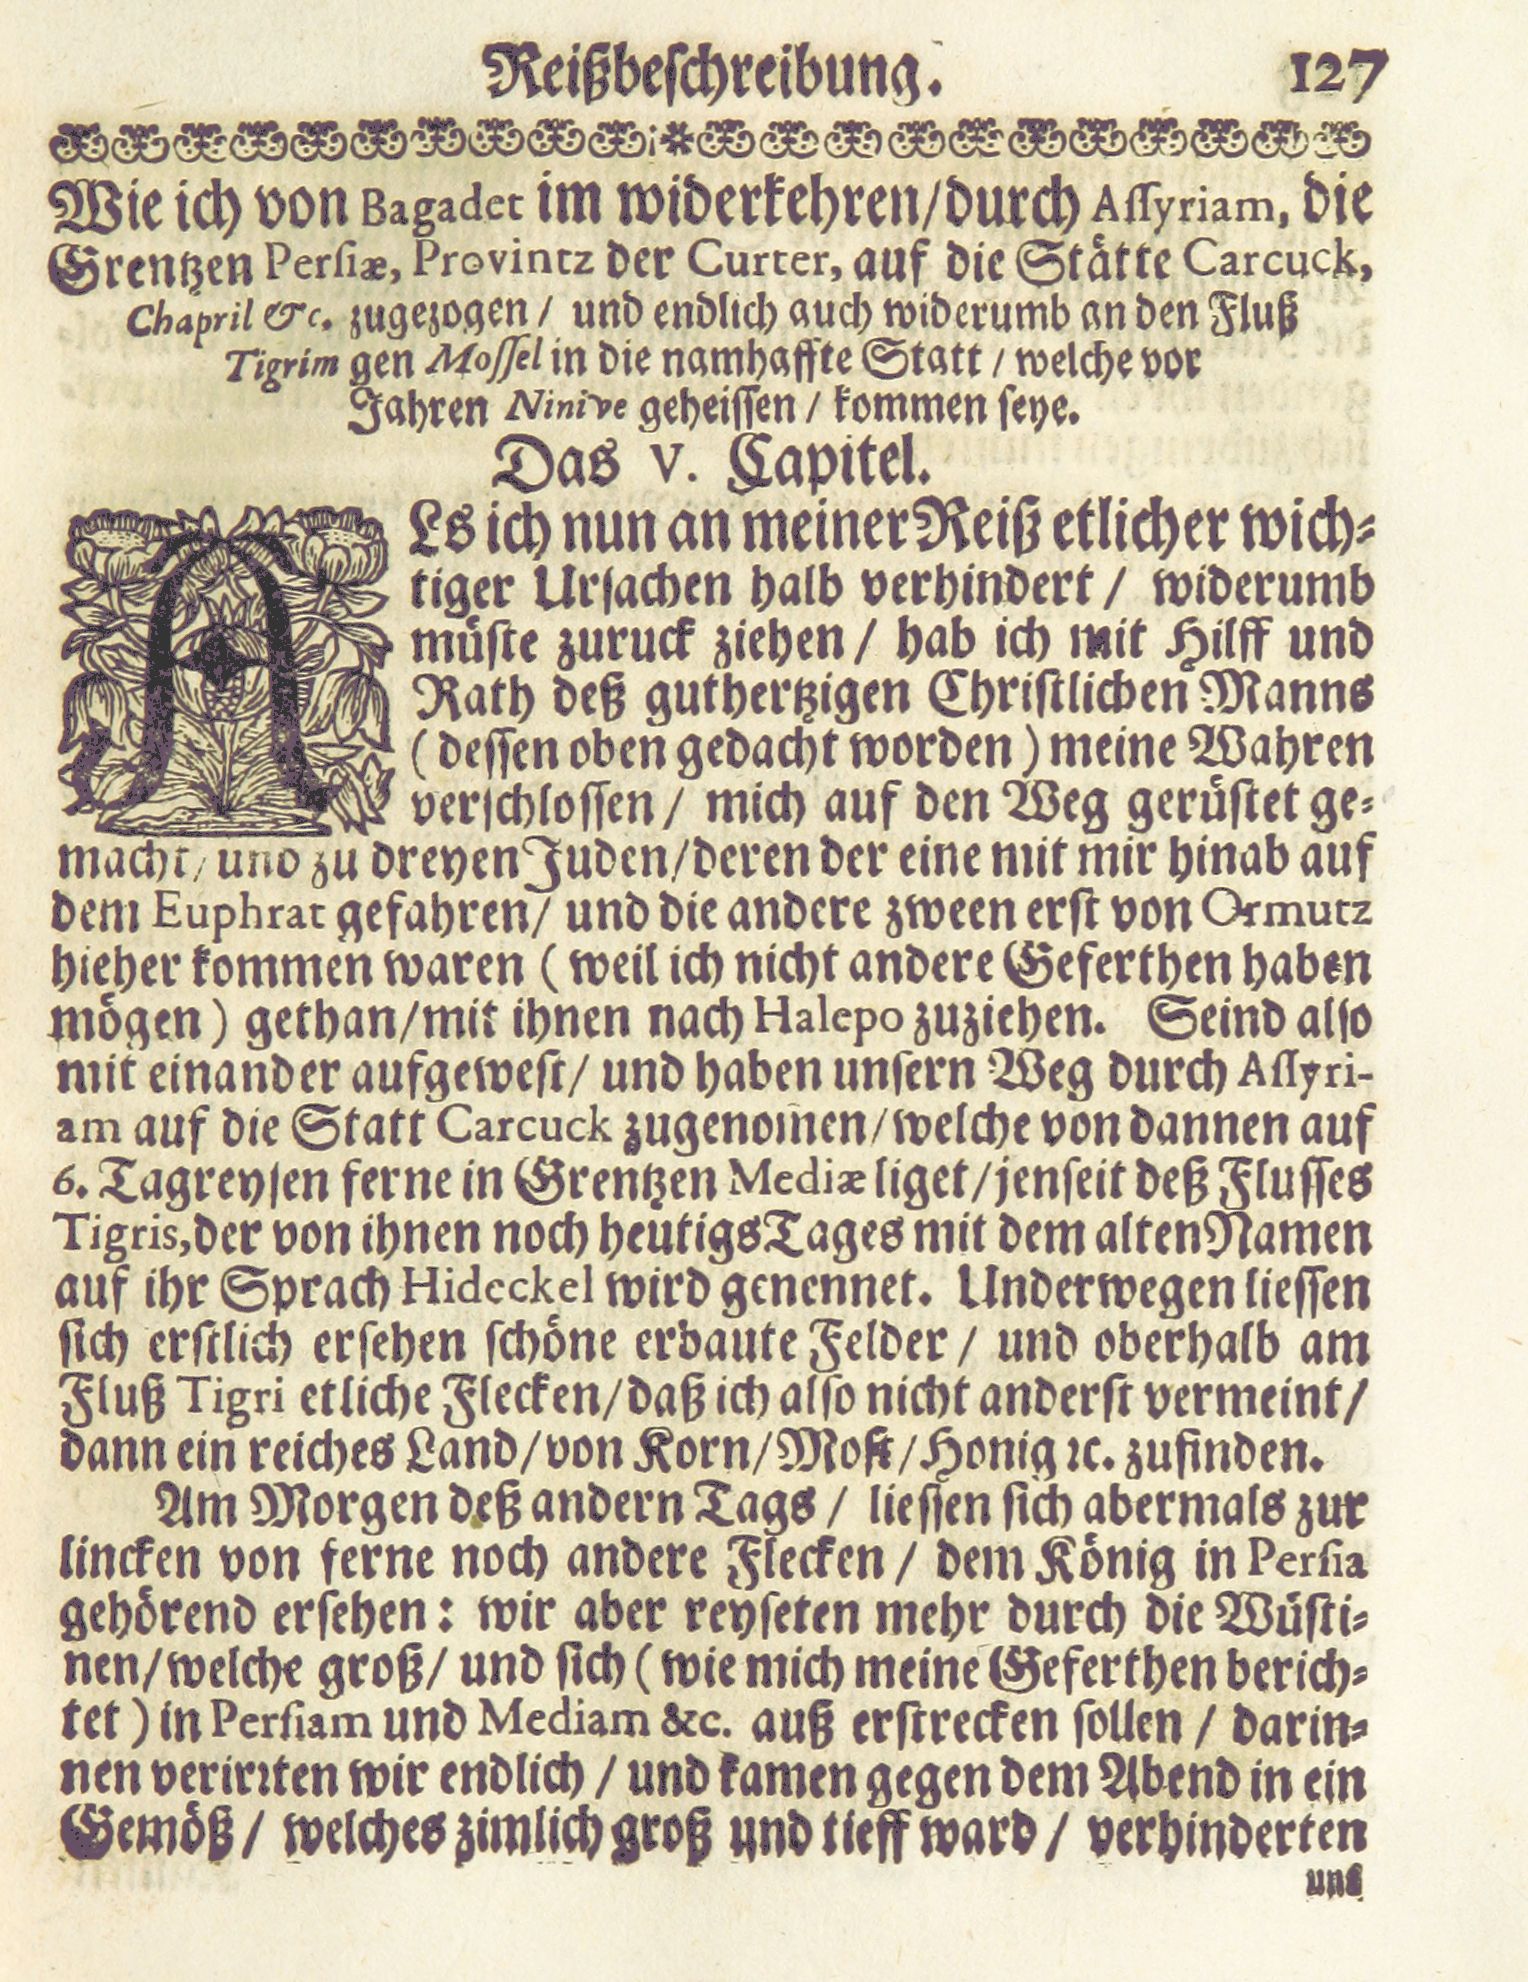 Reißbeſchreibung. 127
Wie ich von Bagadet im widerkehren/durch Aſſyriam, die
Grentzen Perſiæ, Provintz der Curter, auf die Stätte Carcuck,
Chapril &c. zugezogen / und endlich auch widerumb an den Fluß
Tigrim gen Moſſel in die namhaffte Statt / welche vor
Jahren Ninive geheiſſen / kommen ſeye.
Das V. Capitel.
ALs ich nun an meiner Reiß etlicher wich⸗
tiger Urſachen halb verhindert / widerumb
müſte zuruck ziehen / hab ich mit Hilff und
Rath deß guthertzigen Chriſtlichen Manns
( deſſen oben gedacht worden ) meine Wahren
verſchloſſen / mich auf den Weg gerüſtet ge⸗
macht / und zu dreyen Juden/deren der eine mit mir hinab auf
dem Euphrat gefahren/ und die andere zween erſt von Ormutz
hieher kommen waren ( weil ich nicht andere Geferthen haben
mögen ) gethan/mit ihnen nach Halepo zuziehen. Seind alſo
mit einander aufgeweſt/ und haben unſern Weg durch Aſſyri-
am auf die Statt Carcuck zugenom̃en/welche von dannen auf
6. Tagreyſen ferne in Grentzen Mediæ liget/jenſeit deß Fluſſes
Tigris,der von ihnen noch heutigs Tages mit dem alten Namen
auf ihr Sprach Hideckel wird genennet. Underwegen lieſſen
ſich erſtlich erſehen ſchöne erbaute Felder / und oberhalb am
Fluß Tigri etliche Flecken/daß ich alſo nicht anderſt vermeint/
dann ein reiches Land/von Korn/Moſt/Honig ꝛc. zufinden.
Am Morgen deß andern Tags / lieſſen ſich abermals zur
lincken von ferne noch andere Flecken / dem König in Perſia
gehörend erſehen: wir aber reyſeten mehr durch die Wüſti⸗
nen/welche groß/ und ſich ( wie mich meine Geferthen berich⸗
tet ) in Perſiam und Mediam &c. auß erſtrecken ſollen / darin⸗
nen verirꝛten wir endlich / und kamen gegen dem Abend in ein
Gemöß / welches zimlich groß und tieff ward / verhinderten
uns